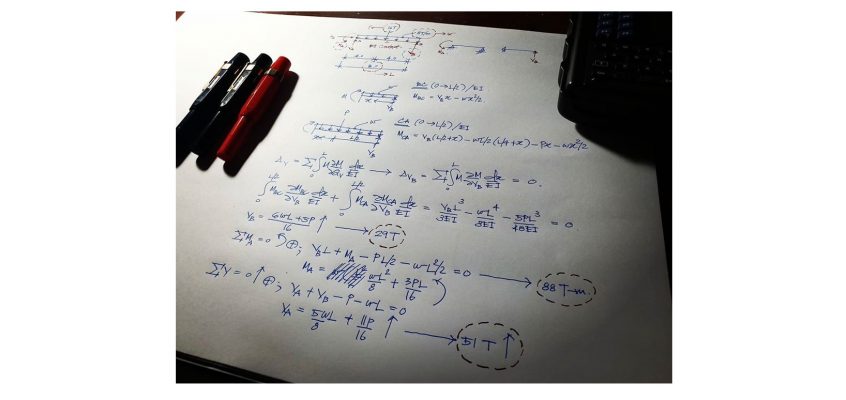 BC (0→L/2)/EI
M_BC = V_B x - wx²/2
P
CA (0→L/2)/EI
M_CA = V_B(L/2+x) - wL/2(L/4+x) - Px - wx²/2
→ Δ_VB = Σ∫₀ᴸ M ∂M/∂V_B dx/EI = 0.
∫₀^(L/2) M_BC ∂M_BC/∂V_B dx/EI + ∫₀^(L/2) M_CA ∂M_CA/∂V_B dx/EI = V_B L³/3EI - wL⁴/8EI - 5PL³/48EI = 0
V_B = 6wL+5P/16 ↑ → 29T
ΣM_A=0 ⊕; V_B L + M_A - PL/2 - wL²/2 = 0
M_A = wL²/8 + 3PL/16 → 88 T-m.
ΣY=0 ↑⊕; V_A + V_B - P - wL = 0
V_A = 5wL/8 + 11P/16 ↑ → 51 T ↑